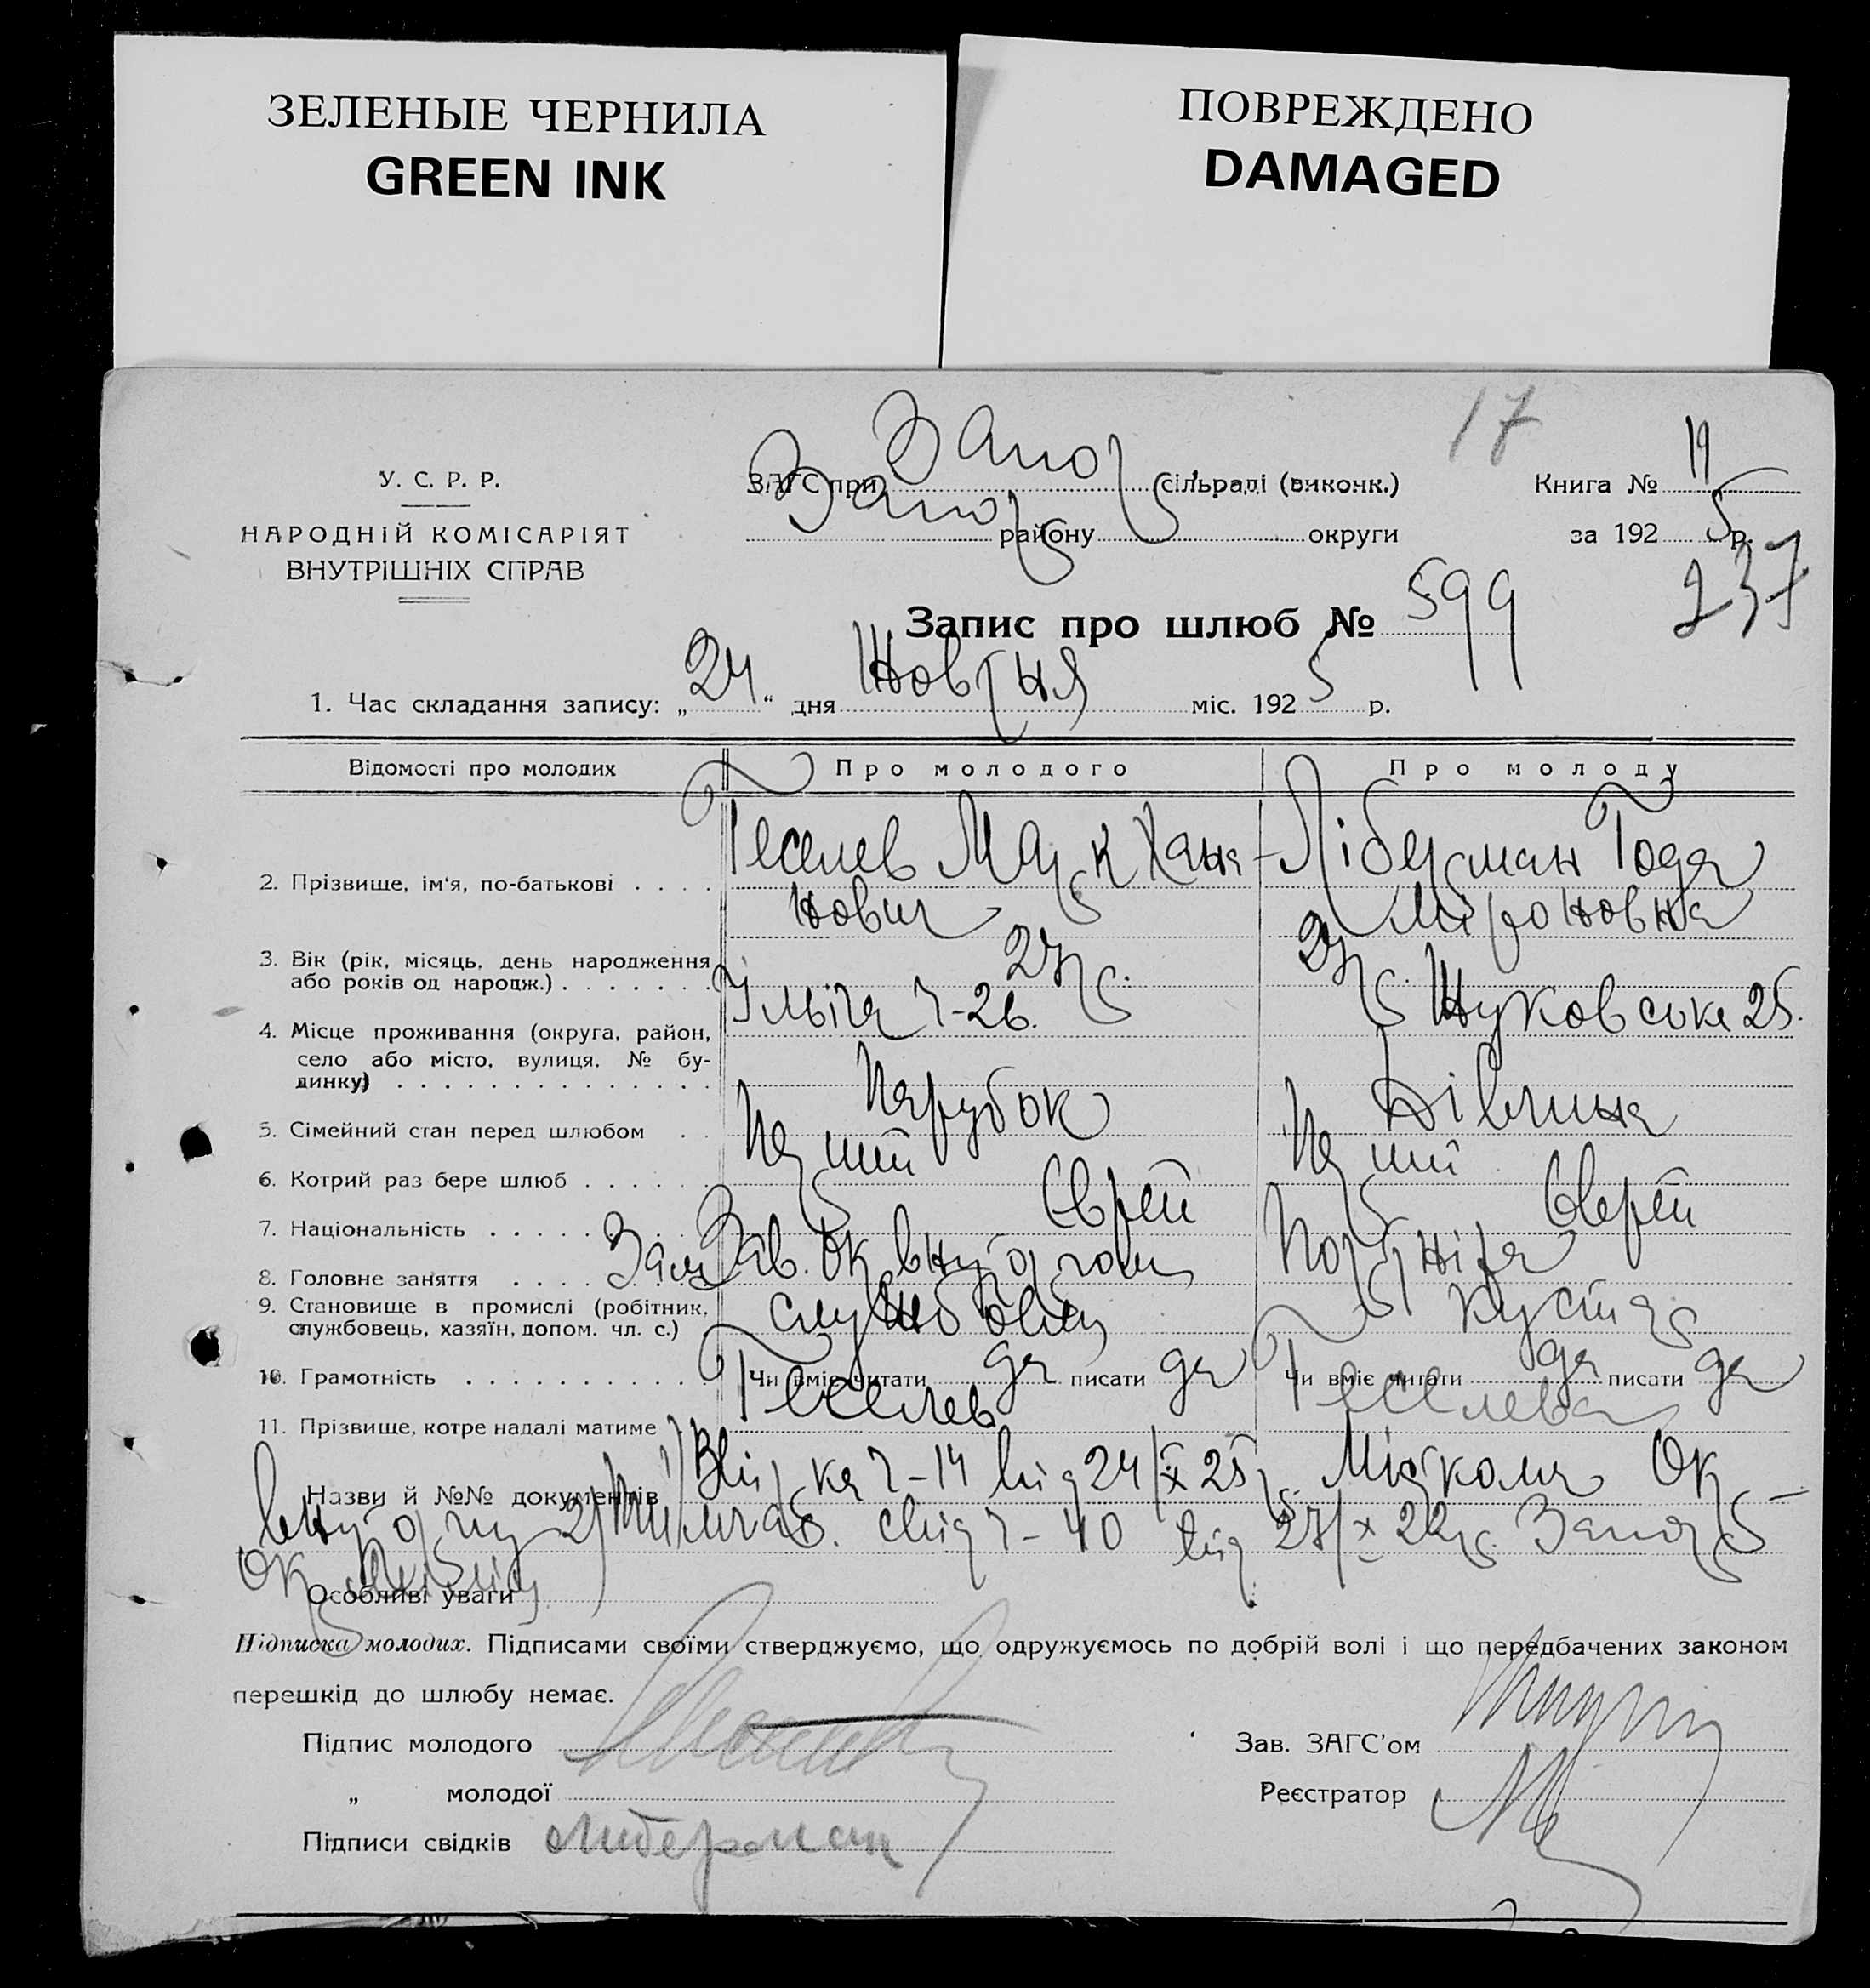 ЗЕЛЕНЫЕ ЧЕРНИЛА
GREEN INK
ПОВРЕЖДЕНО
DAMAGED
17
У. С. Р. Р.
НАРОДНІЙ КОМІСАРІЯТ
ВНУТРІШНІХ СПРАВ
ЗАГС при Запор сільраді (виконк.)
Запор району округи
Книга № 19
за 192 5 р.
237
Запис про шлюб № 599
1. Час складання запису: „ 24 “ дня Жовтня міс. 192 5 р.
Відомості про молодих Про молодого Про молоду
2. Прізвище, ім'я, по-батькові Геселев Марк Хана- Ліберман Года
нович Міроновна
3. Вік (рік, місяць, день народження 27 р. 27 р.
або років од народж.)
4. Місце проживання (округа, район, Ільіча 7-26. Жуковська 25.
село або місто, вулиця, № бу-
динку)
5. Сімейний стан перед шлюбом Парубок Дівчина
6. Котрий раз бере шлюб Перший Перший
7. Національність Єврей Єврей
8. Головне заняття Зам Зав. Окрвнуторгом
9. Становище в промислі (робітник, службовец кустар
службовець, хазяїн, допом. чл. с.)
10. Грамотність Чи вміє читати да писати да Чи вміє читати да писати да
11. Прізвище, котре надалі матиме Геселев Геселева
Назви й №№ документів 1) Довідка 7-14 від 24/X 25 р. Місткома Окр
внуторгу 2) Тимчас. свід 7-40 від 27/X 22 р. Запор
Окр
Особливі уваги
Підписка молодих. Підписами своїми стверджуємо, що одружуємось по добрій волі і що передбачених законом
перешкід до шлюбу немає.
Підпис молодого
Зав. ЗАГС'ом
„ молодої
Реєстратор
Підписи свідків Либерман